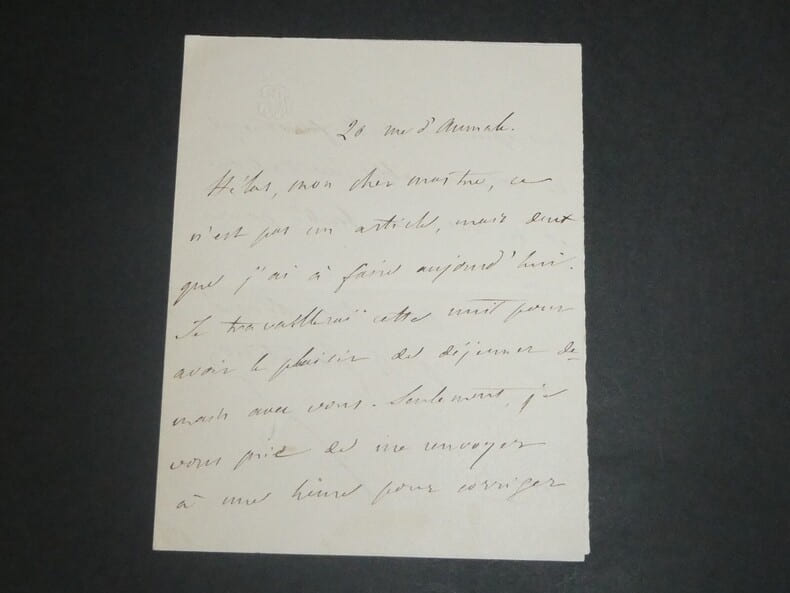 20 rue d'Aumale.
Hélas, mon cher maître, ce
n'est pas un article, mais deux
que j'ai à faire aujourd'hui.
Je travaillerai cette nuit pour
avoir le plaisir de déjeuner de-
main avec vous. Seulement, je
vous prie de me renvoyer
à une heure pour corriger